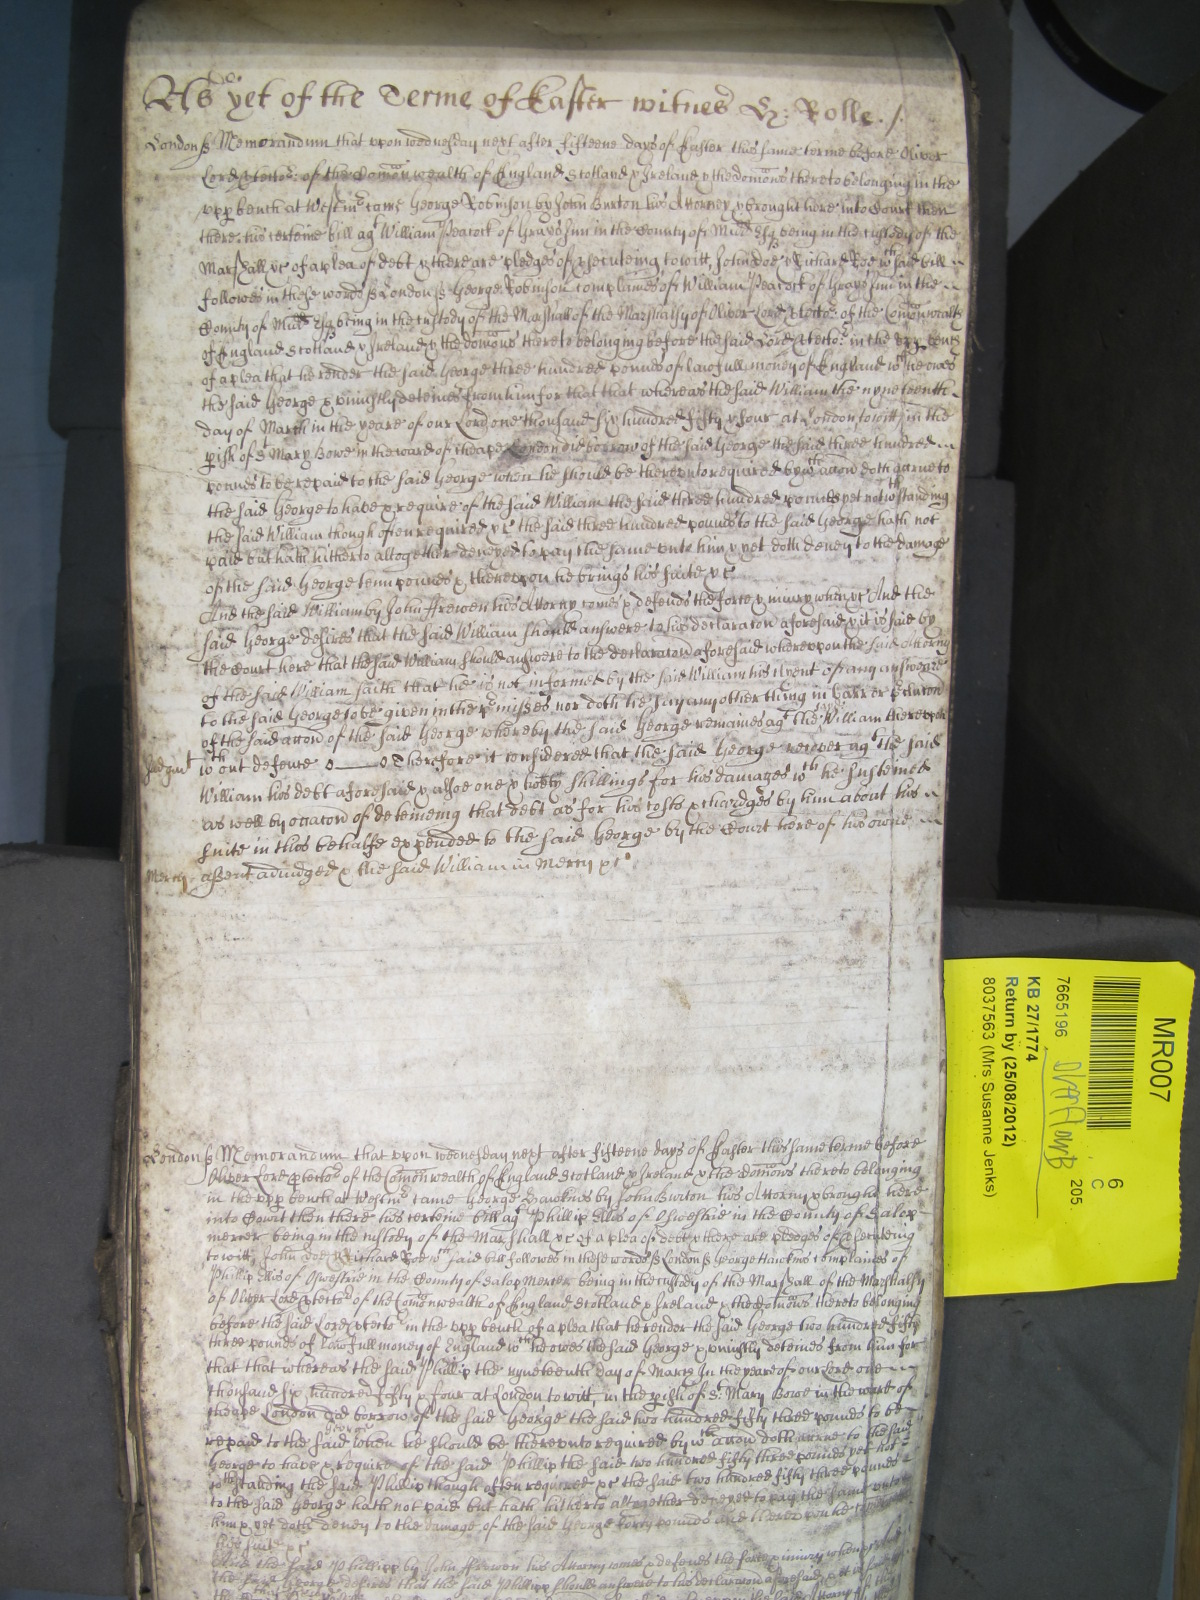 As yet of the Terme of Easter witnes Hen: Rolle ./
London ss Memorandum that upon wednesday next after fifteene days of Easter this same terme before Oliver
Lord Protector of the Comonwealth of England Scotland & Ireland & the dominions thereto belonging in the
upp bench at Westmr came George Robinson by John Burton his Attorney & brought here into Court then
there his certeine bill agt William Peacock of Grays Inn in the County of Midd Esq being in the custody of the
Marshall &c of a plea of debt & there are pledges of prosecuteing to witt, John Doe & Richard Roe wch said bill
followes in these words ss London ss George Robinson complaines of William Peacock of Grays Inn in the
County of Midd Esq being in the custody of the Marshall of the Marshalsy of Oliver Lord Protector of the Comonwealth
of England Scotland & Ireland & the dominions thereto belonging before the said Lord Protector in the upp bench
of a plea that he render the said George three hundred pounds of lawfull money of England wch he owes
the said George & uniustly deteines from him for that that whereas the said William the nyneteenth
day of March in the yeare of our Lord one thousand six hundred fifty & four at London to witt, in the
pish of St Mary Bowe in the ward of Cheape London did borrow of the said George the said three hundred
pounds to be repaid to the said George when he should be thereunto required by wch accon doth accrue to
the said George to have & require of the said William the said three hundred pounds yet notwthstanding
the said William though often required &c the said three hundred pounds to the said George hath not
paid but hath hitherto altogether denyed to pay the same unto him & yet doth deney to the damage
of the said George tenn pounds & thereupon he brings his suite &c
And the said William by John Frewen his Attorny comes & defends the force & iniury when &c And the
said George desires that the said William should answere to his declaraton aforesaid & it is said by
the Court here that the said William should answere to the declaraton aforesaid whereupon the said Attorny
of the said William saith that he is not informed by the said William his clyent of any answeare
to the said George to be given in the pmisses nor doth he say any other thing in barr or preclusion
of the said accon of the said George whereby the said George remaines agt the said William thereupon
Judgmt wthout defence o——o Therefore it is considered that the said George recover agt the said
William his debt aforesaid & alsoe one & twenty shillings for his damages wch he susteined
as well by occaton of deteineing that debt as for his costs & chardges by him about his
suite in this behalfe expended to the said George by the Court here of his owne
Mercy assent adiudged & the said William in Mercy &c
London ss Memorandum that upon wednesday next after fifteene days of Easter this same terme before
Oliver Lord Protector of the Comonwealth of England Scotland & Ireland & the dominions thereto belonging
in the upp bench at Westmr came George Hawkins by John Burton his Attorny & brought here
into Court then there his certeine bill agt Phillip Ellis of Oswestrie in the County of Salop
mercer being in the custody of the Marshall &c of a plea of debt & there are pledges of prosecuteing
to witt, John Doe & Richard Roe wch said bill followes in these words ss London ss George Hawkins complaines of
Phillip Ellis of Oswestrie in the County of Salop Mercer being in the custody of the Marshall of the Marshalsy
of Oliver Lord Protector of the Comonwealth of England Scotland & Ireland & the dominions thereto belonging
before the said Lord Protector in the upp bench of a plea that he render the said George two hundred fifty
three pounds of lawfull money of England wch he owes the said George & uniustly deteines from him for
that that whereas the said Phillip the nyneteenth day of March In the yeare of our Lord one
thousand six hundred fifty & four at London to witt, in the pish of St Mary Bowe in the ward of
Cheape London did borrow of the said George the said two hundred fifty three pounds to be
repaid to the said George when he should be thereunto required by wch accon doth accrue to the said
George to have & require of the said Phillip the said two hundred fifty three pounds yet not
wthstanding the said Phillip though often required &c the said two hundred fifty three pounds
to the said George hath not paid but hath hitherto altogether denyed to pay the same unto
him & yet doth deney to the damage of the said George forty pounds And thereupon he brings
his suite &c
And the said Phillipp by John Frewen his Attorny comes & defends the force & iniury when &c And
the said George desires that the said Phillipp should answere to his declaraton aforesaid
MR007
6
C
205.
7665196
KB 27/1774
Return by (25/08/2012)
8037563 (Mrs Susanne Jenks)